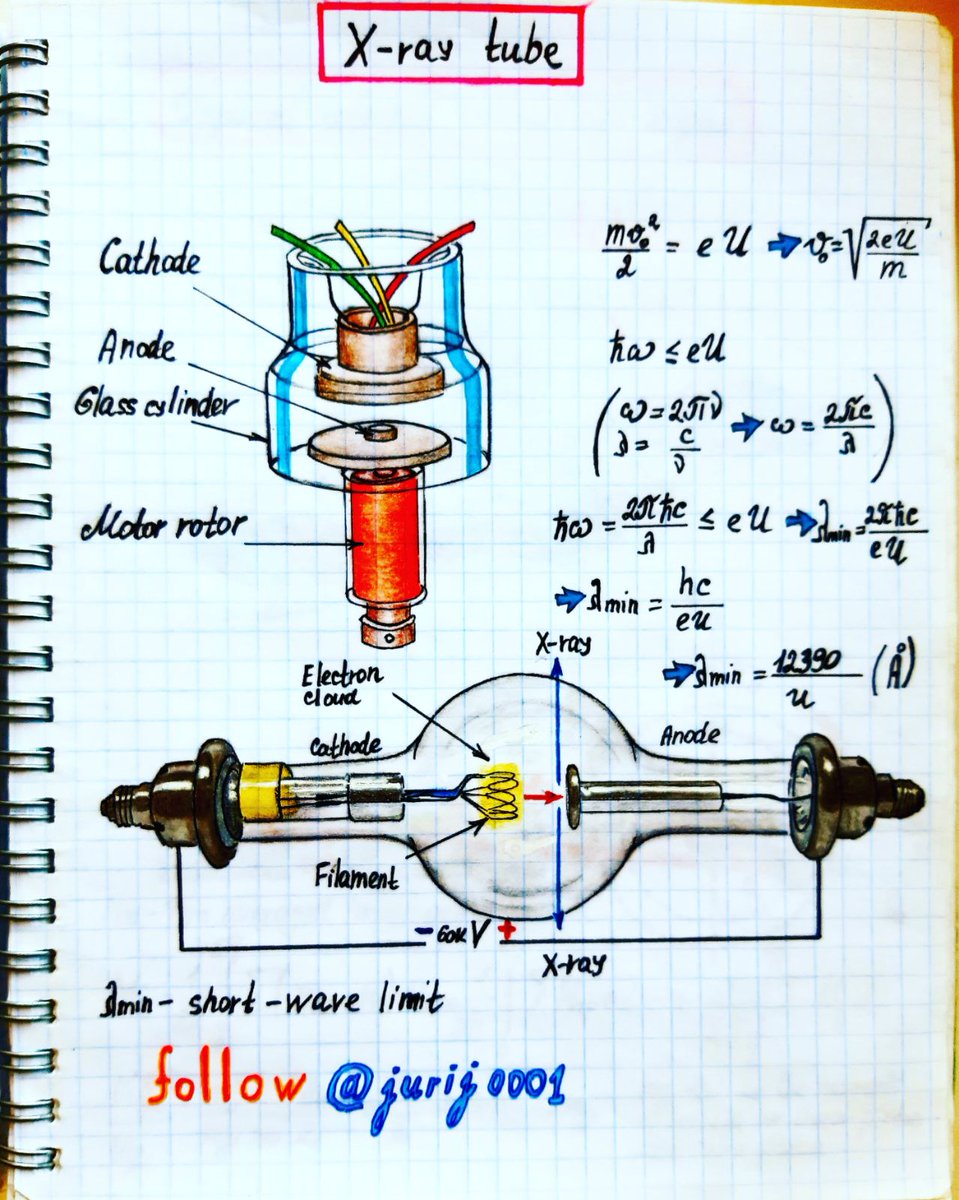 X-ray tube
Cathode
Anode
Glass cylinder
Motor rotor
mv₀²/2 = eU ➡ v₀ = √(2eU/m)
ħω ≤ eU
(ω = 2πν
λ = c/ν ➡ ω = 2πc/λ)
ħω = 2πħc/λ ≤ eU ➡ λmin = 2πħc/eU
➡ λmin = hc/eU
➡ λmin = 12390/U (Å)
X-ray
Electron
cloud
Cathode
Anode
Filament
- 60K V +
X-ray
λmin - short-wave limit
follow @jurij0001